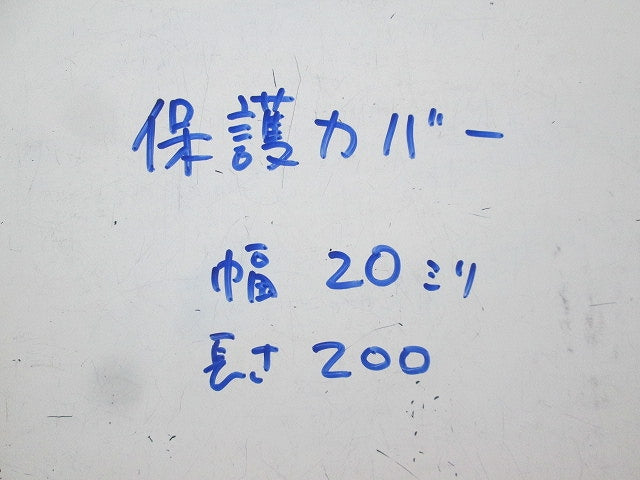 保護カバー
幅 20ミリ
長さ 200